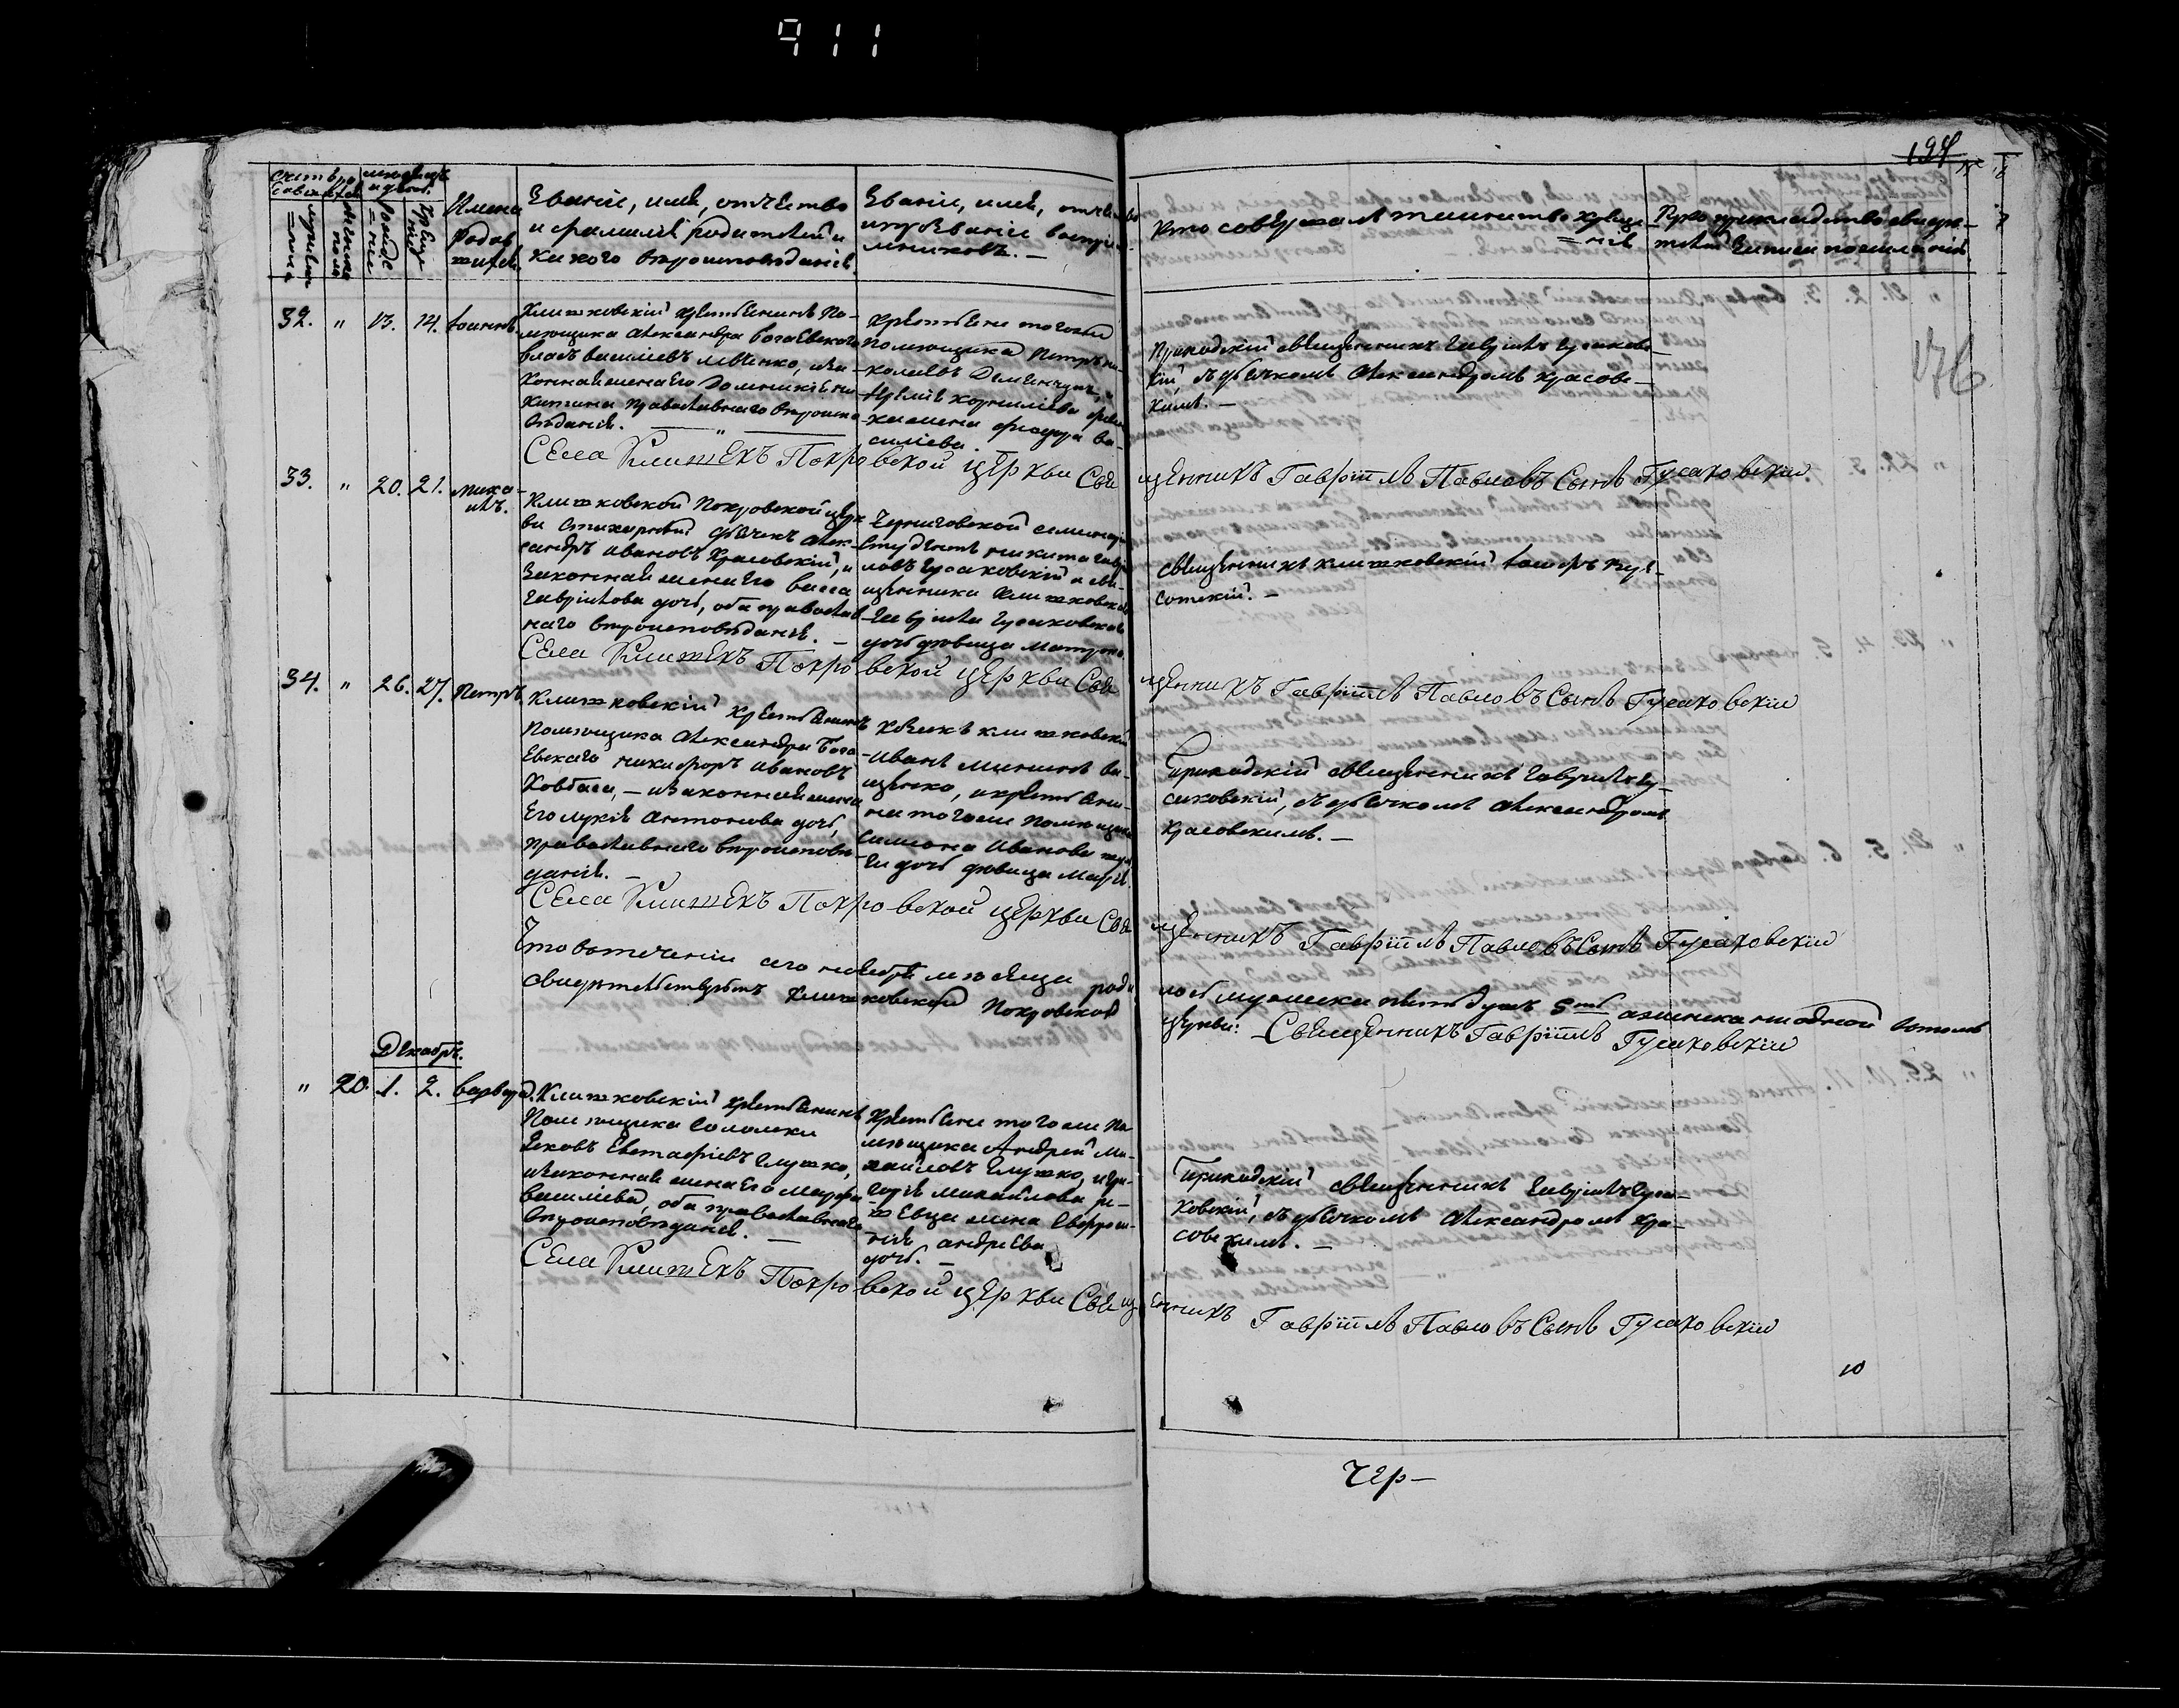 911
194
176
Счетъ ро
мѣсяцъ
и день.
Имена
родив
шихся.
Званіе, имя, отчество
и фамилія родителей и
какого вѣроисповѣданія.
Званіе, имя, отчество
и прозваніе воспріе-
мниковъ. —
Кто совершалъ таинство креще-
=нія
32. " 13. 14. Іоаннъ.
Клишковскій крестьянинъ по-
мѣщика Александра Богаевскаго
Власъ Василіевъ
конная жена Его
православнаго вѣроиспо-
вѣданія. — " —
Крестьяне тогожъ
помѣщика Петръ Ни-
колаевъ
жена Феодора Ва-
силіева.
Приходскій священникъ Гавріилъ Гусаковс-
кій, съ дьячкомъ Александромъ Красовс-
кимъ. —
Села Клишекъ Покровской церкви Священникъ Гавріилъ Павловъ Сынъ Гусаковскій.
33. " 20. 21. Миха-
илъ.
Клишковской Покровской церк
ви стихарный дьячекъ Алек-
сандръ Ивановъ Красовскій, и
законная жена Его Васса
Гавріилова дочь, оба православ
наго вѣроисповѣданія. —
Черниговской семинаріи
студентъ Никита Гаврі
ловъ Гусаковскій и свя-
щенника Клишковской
Гавріила Гусаковскаго
дочь дѣвица Матрона.
Священникъ Клишковскій
сотскій. —
Села Клишекъ Покровской церкви Священникъ Гавріилъ Павловъ Сынъ Гусаковскій
34. " 26. 27. Петръ.
Клишковскій крестьянинъ
помѣщика Александра Бога
евскаго Никифоръ Ивановъ
Ковбаса, — и законная жена
Его Лукія Антонова дочь,
православнаго вѣроисповѣ-
данія. —
Козакъ Клишковскій
Иванъ Мининъ Ва-
щенко, и крестьяни-
на тогоже помѣщика
Симеона Иванова
дочь дѣвица Марія.
Приходскій священникъ Гавріилъ Гу-
саковскій, съ дьячкомъ Александромъ
Красовскимъ. —
Села Клишекъ Покровской церкви Священникъ Гавріилъ Павловъ Сынъ Гусаковскій
Что въ теченіи сего ноября мѣсяца родилось мужеска пять душъ 5ть а женска ни одной въ томъ
свидѣтельствуетъ Клишковской Покровской церкви: Священникъ Гавріилъ Гусаковскій
Декабрь.
" 20. 1. 2. Варвара.
Клишковскій крестьянинъ
помѣщика Соломки
Яковъ Евстафіевъ Глушко,
и законная жена Его Марфа
Василіева, оба православнаго
вѣроисповѣданія. —
Крестьяне тогоже по
мѣщика Андрей Ми-
хайловъ Глушко, и Гри-
горія Михайлова
жена Евфроси-
нія Андреева
дочь. —
Приходскій священникъ Гавріилъ Гуса-
ковскій, съ дьячкомъ Александромъ Кра-
совскимъ. —
Села Клишекъ Покровской церкви Священникъ Гавріилъ Павловъ Сынъ Гусаковскій
10
Чер—